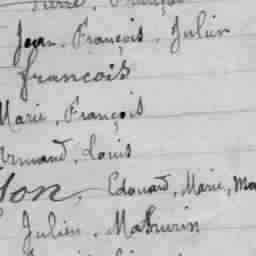 Pierre, François
Jean, François, Julien
francois
Marie, François
Armand, Louis
son, Edouard, Marie, Ma
Julien, Mathurin